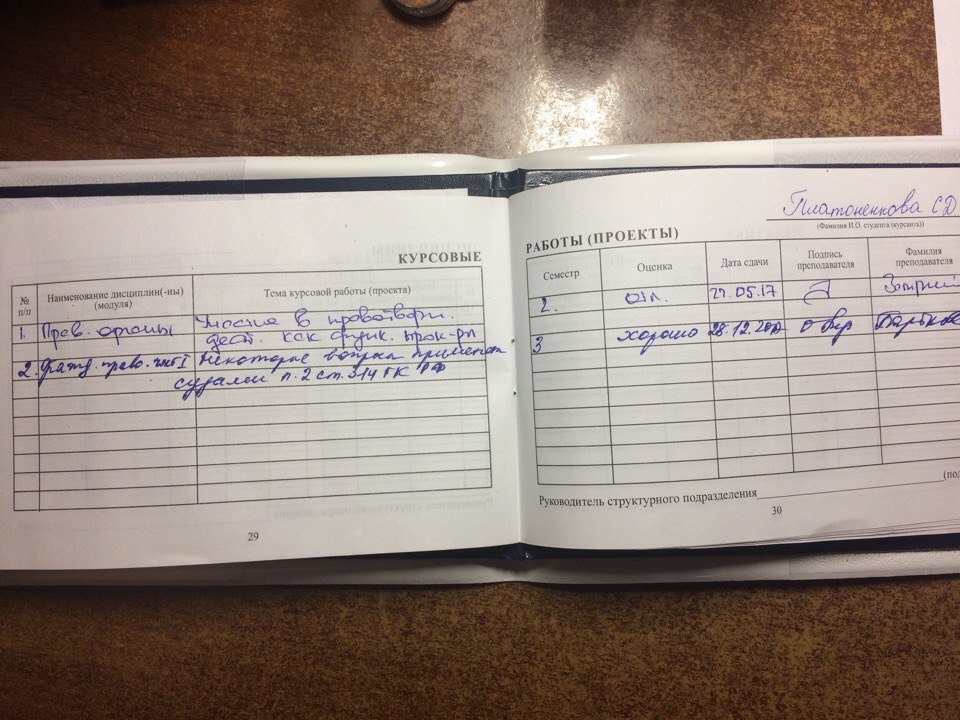 КУРСОВЫЕ
№ п/п
Наименование дисциплин(-ны) (модуля)
Тема курсовой работы (проекта)
1. Прав. органы
Участие в правотворч.
деят. как функ. прок-ры
2. прав. част I Некоторые вопросы применения
судами п. 2 ст. 314 ГК РФ
29
Платоненкова С.Д
(Фамилия И.О. студента (курсанта))
РАБОТЫ (ПРОЕКТЫ)
Семестр
Оценка
Дата сдачи
Подпись преподавателя
Фамилия преподавателя
2. отл. 05.17
3 хорошо 28.12.
Руководитель структурного подразделения
(под
30